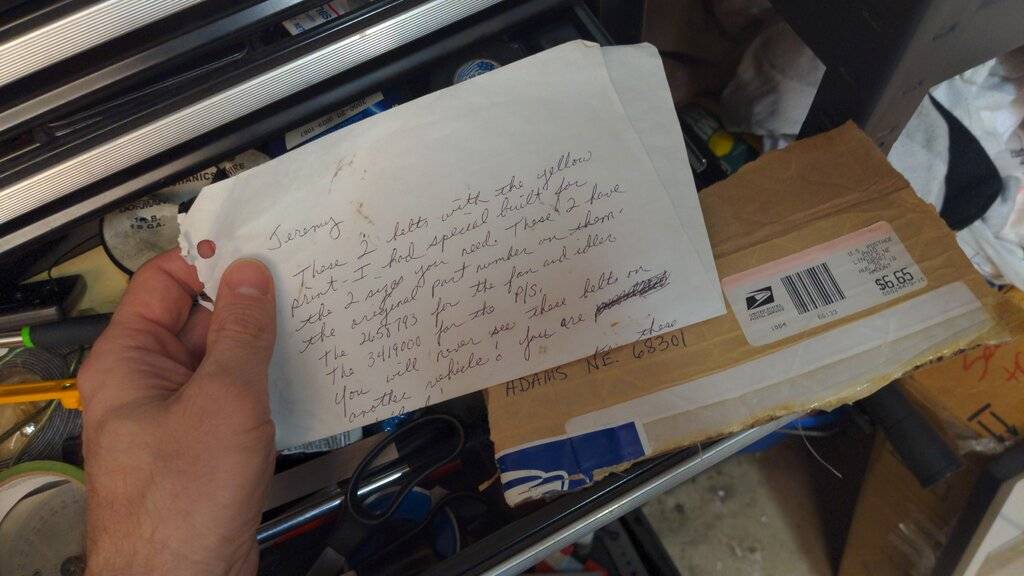 Jeremy
These 2 belts with the yellow
print - I had special built for
the 2 sizes you need. These 2 have
the original part number on them.
The 2658793 for the fan and idler
The 3419000 for the P/S.
You will never see these belts on
another vehicle! you are
these
ADAMS NE. 68301
U.S. POSTAGE
$6.65
UNITED STATES
POSTAL SERVICE
1004